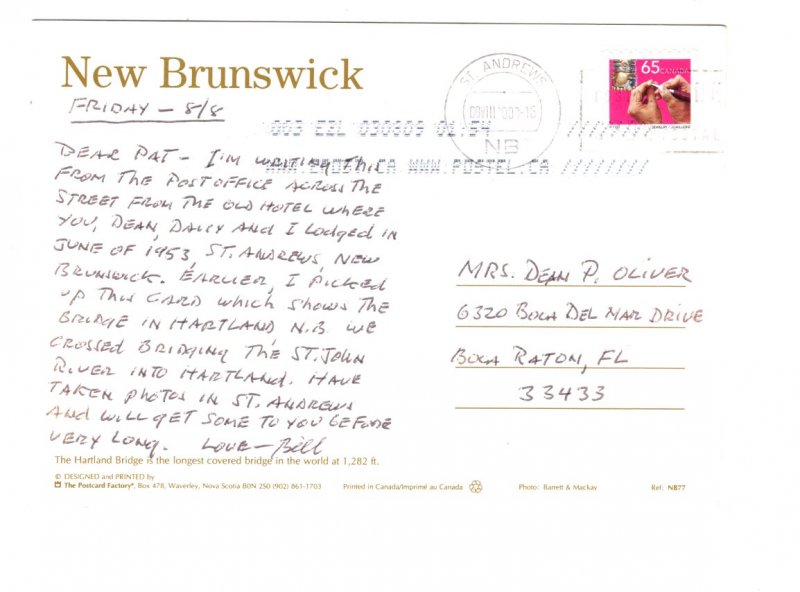 New Brunswick
FRIDAY - 8/8
DEAR PAT - I'M WRITING THIS
FROM THE POST OFFICE ACROSS THE
STREET FROM THE OLD HOTEL WHERE
YOU, DEAN, DALLY AND I LODGED IN
JUNE OF 1953, ST. ANDREWS, NEW
BRUNSWICK. EARLIER, I PICKED
UP THIS CARD WHICH SHOWS THE
BRIDGE IN HARTLAND N.B. WE
CROSSED BRIDGING THE ST. JOHN
RIVER INTO HARTLAND. HAVE
TAKEN PHOTOS IN ST. ANDREWS
AND WILL GET SOME TO YOU BEFORE
VERY LONG. LOVE - Bill
ST. ANDREWS
NB
65 CANADA
WWW.POSTEL.CA
MRS. DEAN P. OLIVER
6320 BOCA DEL MAR DRIVE
BOCA RATON, FL
33433
The Hartland Bridge is the longest covered bridge in the world at 1,282 ft.
© DESIGNED and PRINTED by
The Postcard Factory®, Box 478, Waverley, Nova Scotia B0N 2S0 (902) 861-1703 Printed in Canada/Imprimé au Canada Photo: Barrett & Mackay Ref: NB77